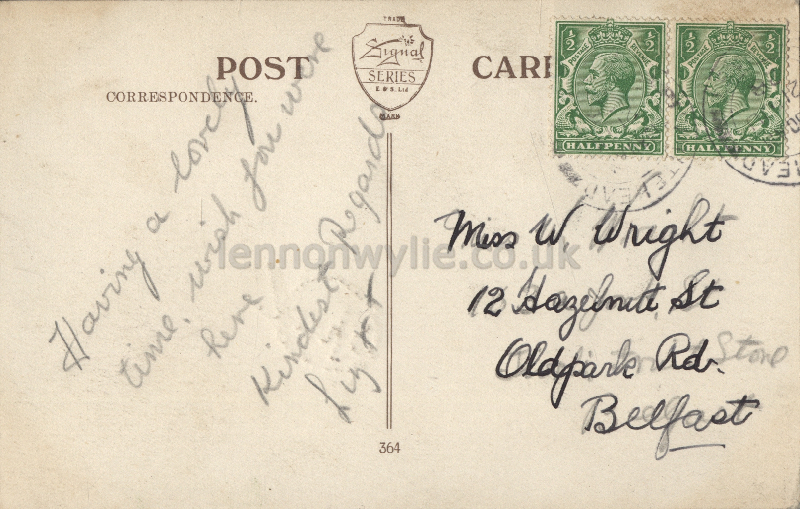 POST CARD
TRADE
Signal
SERIES
E & S. Ltd
MARK
CORRESPONDENCE.
Having a lovely
time. wish you were
here
Kindest Regards
++
364
1/2 POSTAGE 1/2
HALFPENNY
1/2 POSTAGE 1/2
HALFPENNY
Miss W. Wright
12 Hazelnut St
Oldpark Rd.
Belfast
Store
lennonwylie.co.uk